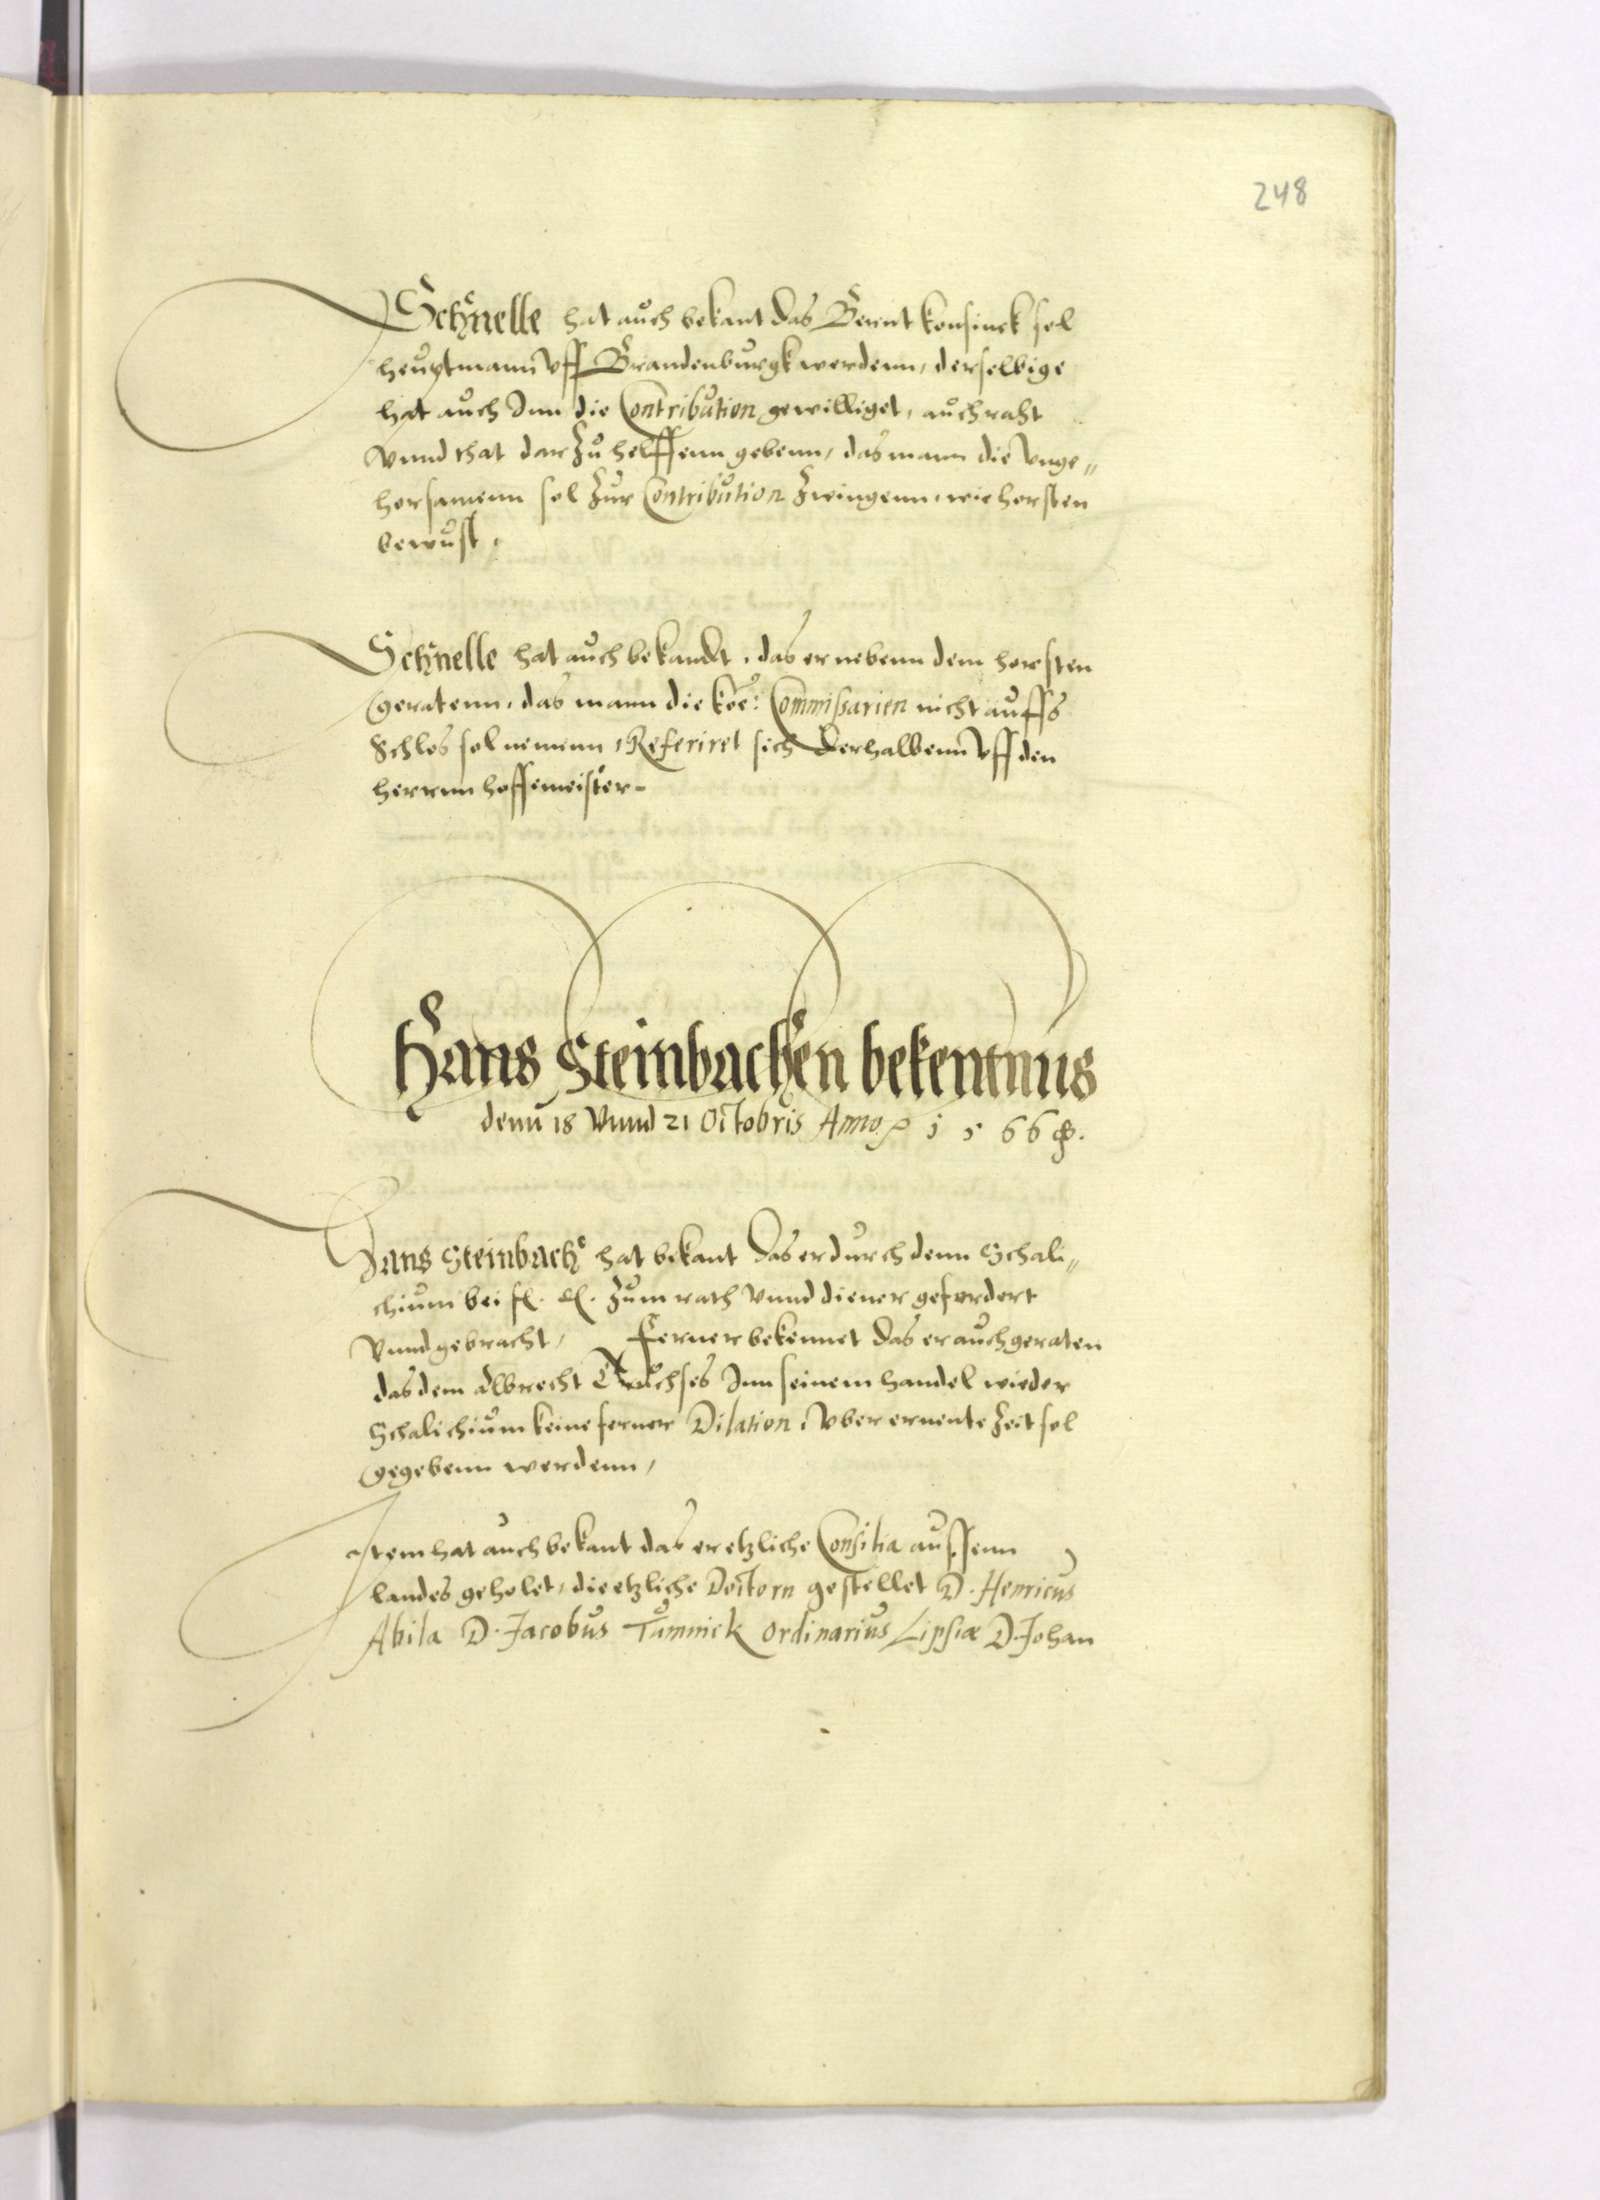 248
Schnelle hat auch bekant das Bernt konsinck sol
heuptmann vff Brandenburgk werdenn, derselbige
hat auch Inn die Contribution gewilliget, auch raht
vnnd that dar Zu helffenn gebenn, das mann die vnge„
horsamenn sol Zur Contribution Zwingenn, wie horsten
bewust.
Schnelle hat auch bekandt, das er nebenn dem horsten
geratenn, das mann die koe: Commissarien nicht auffs
Schlos sol nemenn, Referiret sich derhalbenn vff den
herrnn hoffemeister.
Hans Steinbachen bekentnus
denn 18 vnnd 21 Octobris Anno 1566.
Hans Steinbach hat bekant das er durch denn Schali„
chium bei fl. dl. Zum rath vnnd diener gefordert
vnnd gebracht, Ferner bekennet das er auch geraten
das dem Albrecht Truchses Inn seinem handel wieder
Schalichium keine ferner Dilation, vber ernente Zeit sol
gegebenn werdenn,
Item hat auch bekant das er etzliche Consilia aussenn
landes geholet, die etzliche Doctorn gestellet D. Henricus
Abila D. Jacobus Tamnick ordinarius Lipsiæ D. Johan